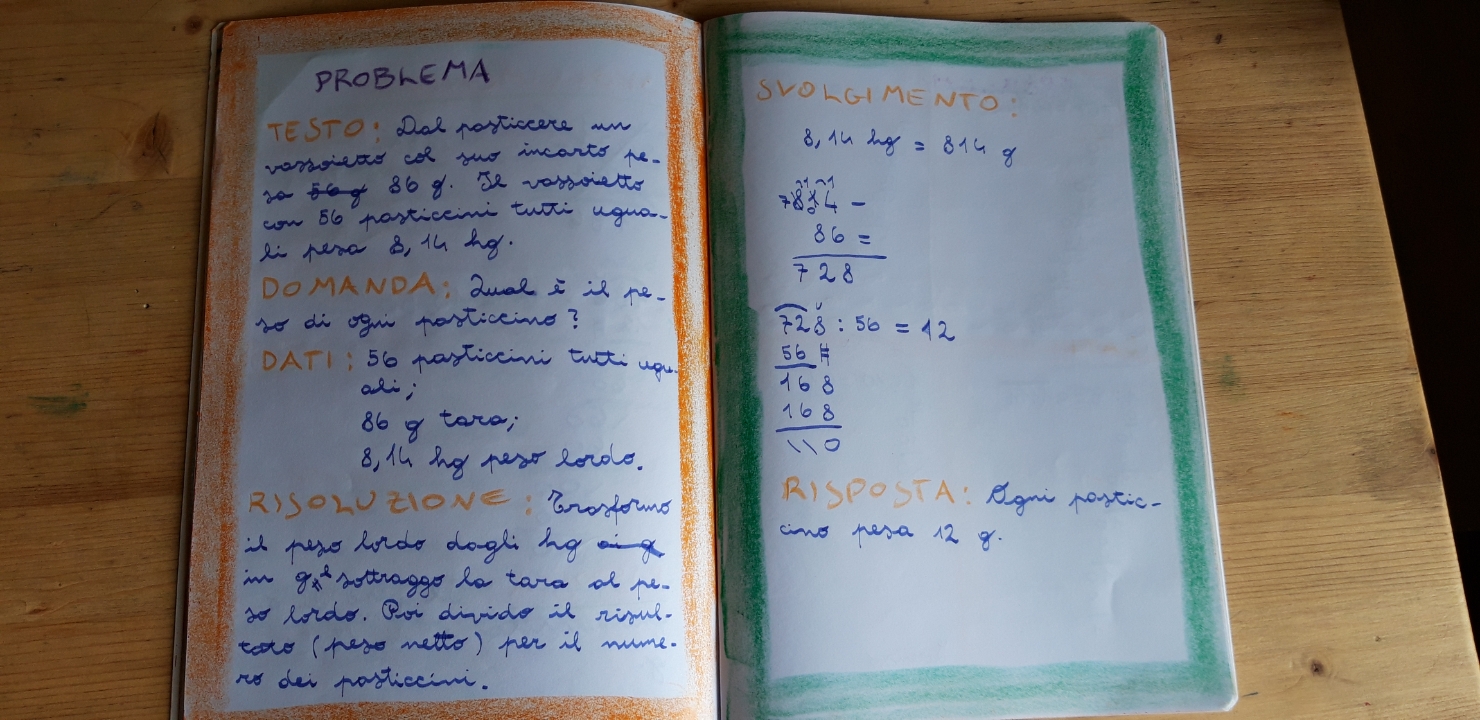 PROBLEMA
TESTO: Dal pasticcere un
vassoietto col suo incarto pe-
sa 56 g 86 g. Il vassoietto
con 56 pasticcini tutti ugua-
li pesa 8,14 hg.
DOMANDA: Qual è il pe-
so di ogni pasticcino?
DATI: 56 pasticcini tutti ugu-
ali;
86 g tara;
8,14 hg peso lordo.
RISOLUZIONE: Trasformo
il peso lordo dagli hg ai g
in g e sottraggo la tara al pe-
so lordo. Poi divido il risul-
tato (peso netto) per il nume-
ro dei pasticcini.
SVOLGIMENTO:
8,14 hg = 814 g
814 -
86 =
728
728 : 56 = 12
56 #
168
168
\\0
RISPOSTA: Ogni pastic-
cino pesa 12 g.